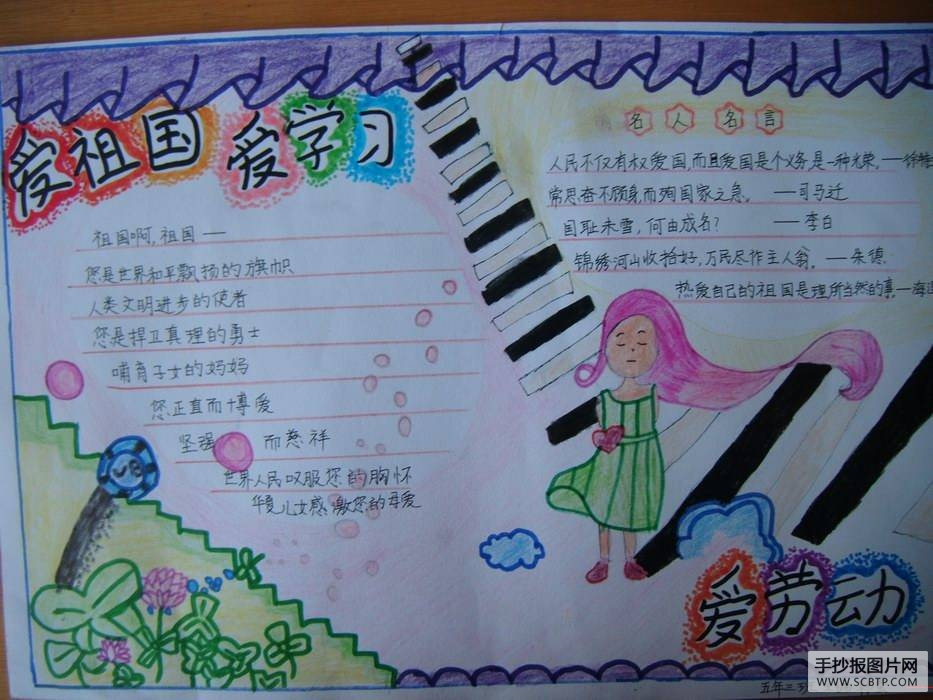 爱祖国 爱学习
祖国啊,祖国—
您是世界和平飘扬的旗帜
人类文明进步的使者
您是捍卫真理的勇士
哺育子女的妈妈
您正直而博爱
坚强 而慈祥
世界人民叹服您的胸怀
华夏儿女感激您的母爱
名人名言
人民不仅有权爱国,而且爱国是个义务,是一种光荣。—徐特
常思奋不顾身,而殉国家之急。 —司马迁
国耻未雪,何由成名? —李白
锦绣河山收拾好,万民尽作主人翁。—朱德
热爱自己的祖国是理所当然的事—海
爱劳动
五年三
手抄报图片网
WWW.SCBTP.COM